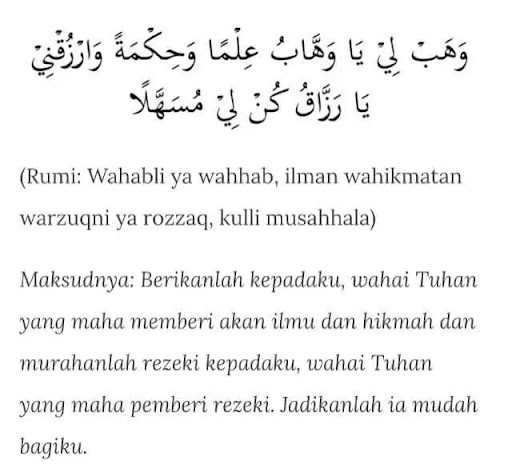 وَهَبْ لِيْ يَا وَهَّابُ عِلْمًا وَحِكْمَةً وَارْزُقْنِيْ
يَا رَزَّاقُ كُنْ لِيْ مُسَهَّلًا
(Rumi: Wahabli ya wahhab, ilman wahikmatan
warzuqni ya rozzaq, kulli musahhala)
Maksudnya: Berikanlah kepadaku, wahai Tuhan
yang maha memberi akan ilmu dan hikmah dan
murahanlah rezeki kepadaku, wahai Tuhan
yang maha pemberi rezeki. Jadikanlah ia mudah
bagiku.